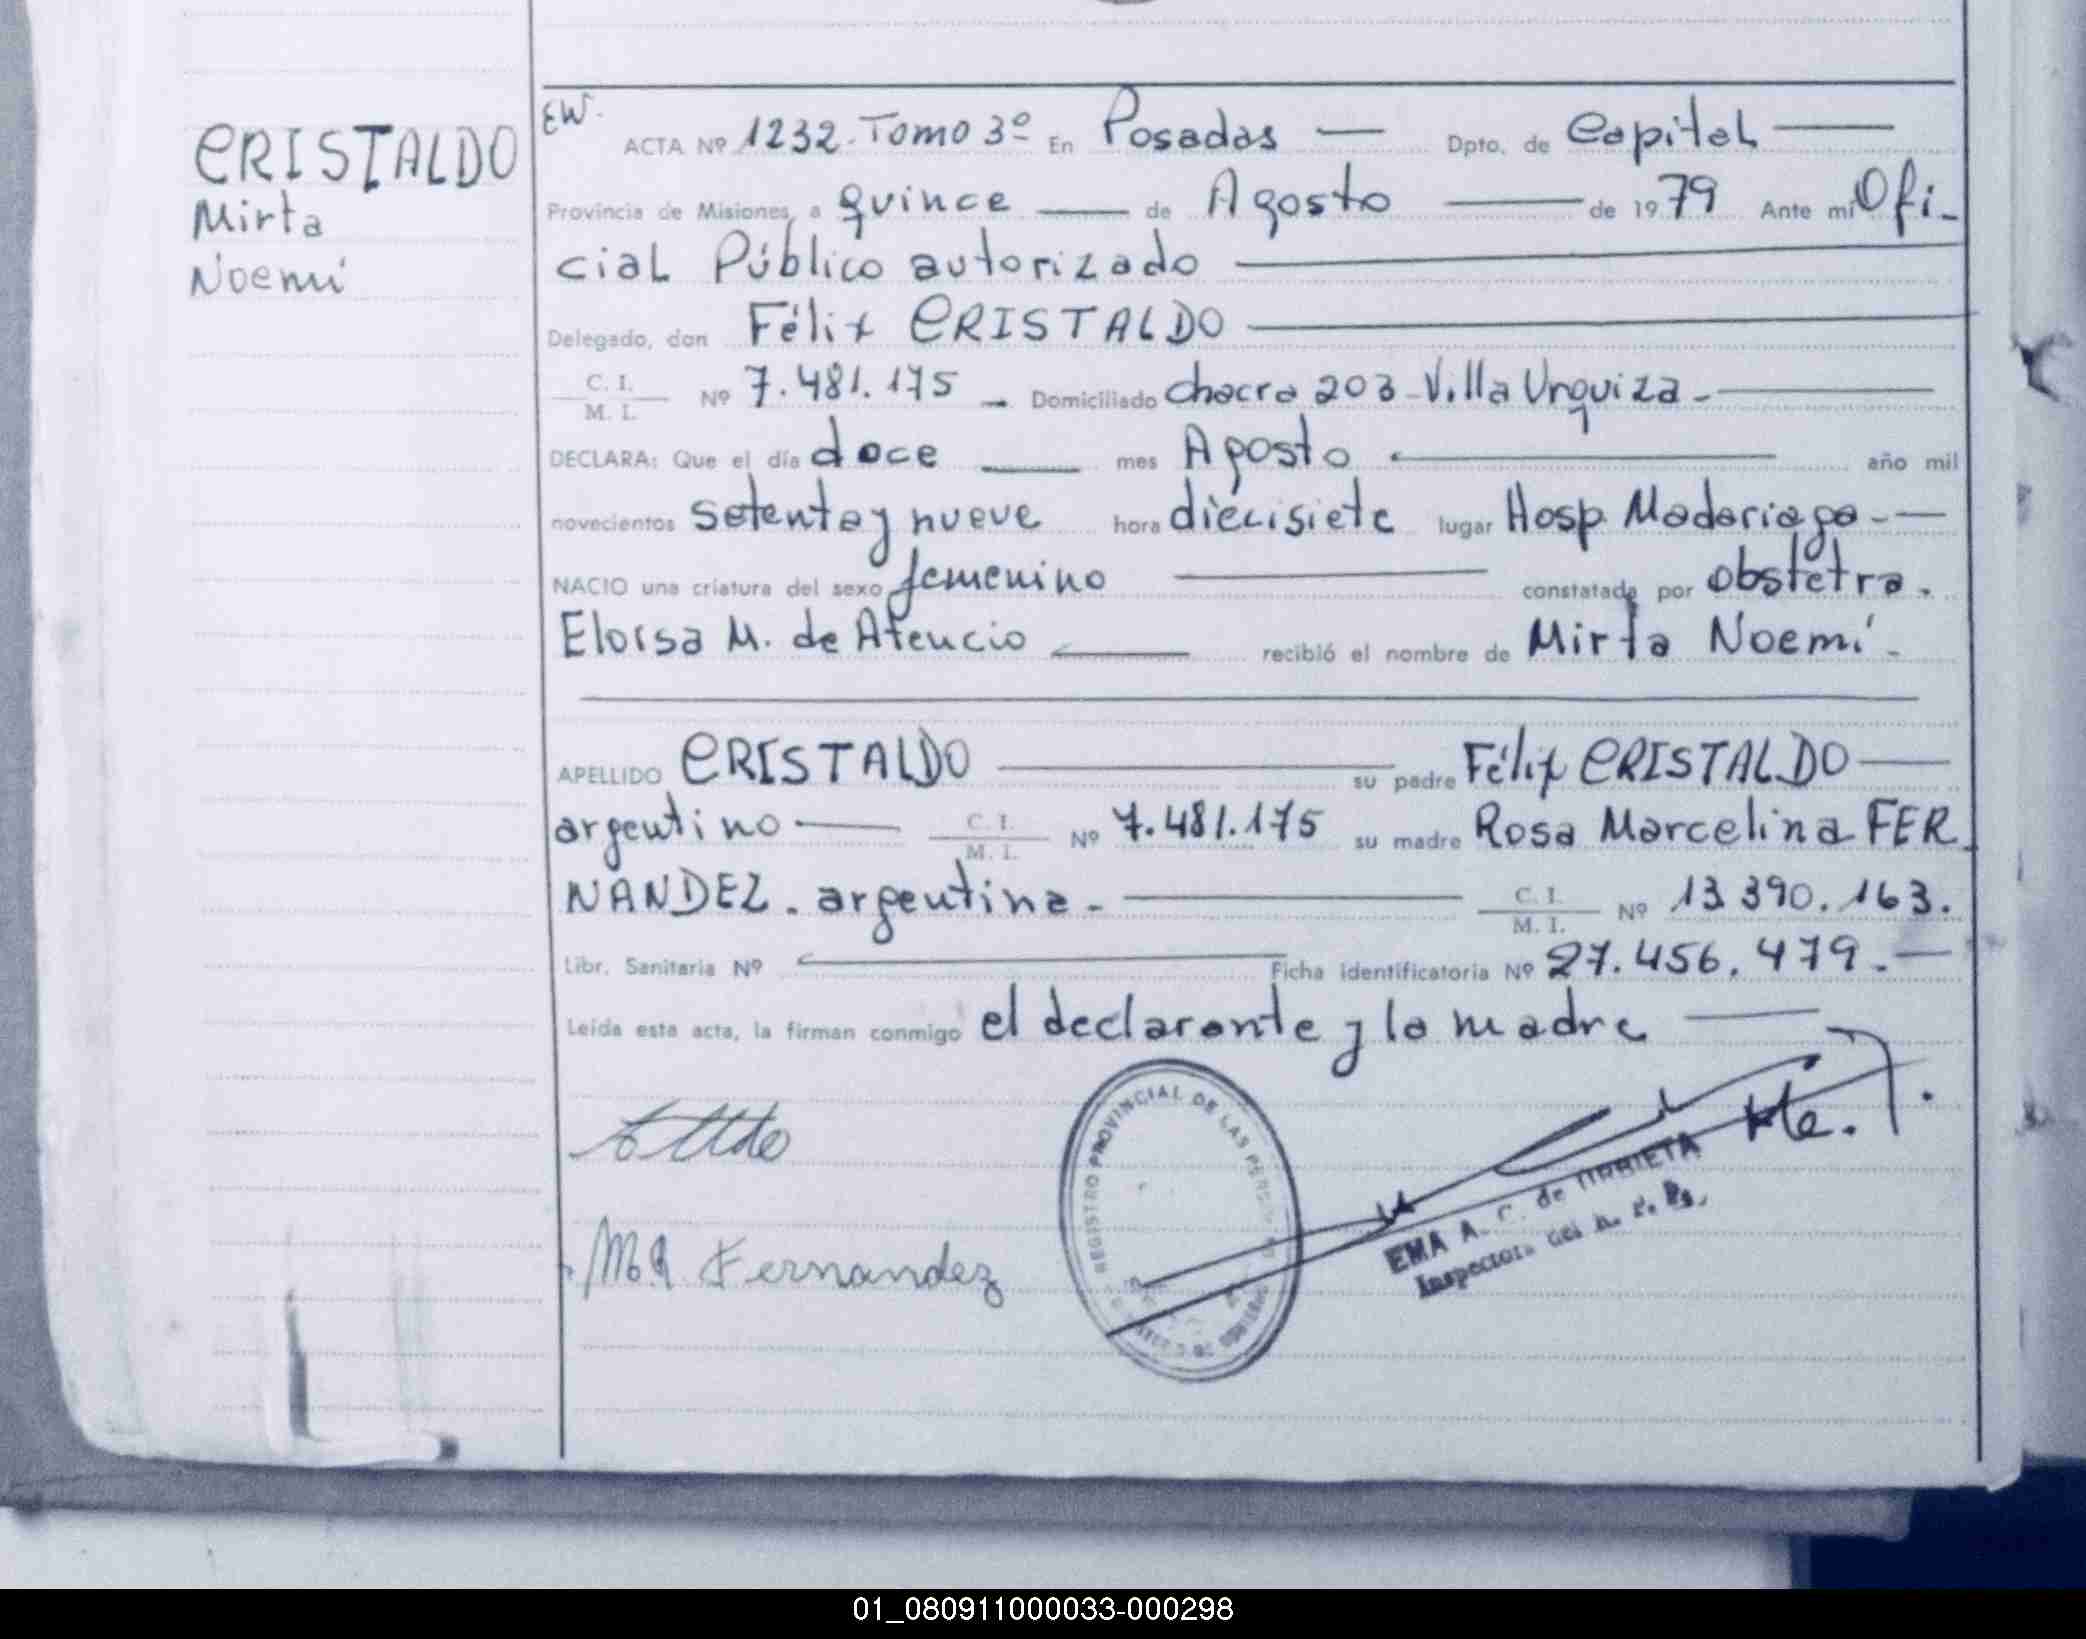 CRISTALDO
Mirta
Noemí
EW.
ACTA Nº 1232. Tomo 3º En Posadas — Dpto. de Capital —
Provincia de Misiones, a quince — de Agosto — de 1979 Ante mí Ofi-
cial Público autorizado —
Delegado, don Félix CRISTALDO —
C. I.
M. I. Nº 7.481.175 - Domiciliado chacra 203 - Villa Urquiza -
DECLARA: Que el día doce — mes Agosto — año mil
novecientos setenta y nueve hora diecisiete lugar Hosp. Madariaga -
NACIO una criatura del sexo femenino — constatada por obstetra.
Eloisa M. de Atencio — recibió el nombre de Mirta Noemí -
APELLIDO CRISTALDO — su padre Félix CRISTALDO —
argentino — C. I.
M. I. Nº 7.481.175 su madre Rosa Marcelina FER
NANDEZ. argentina. — C. I.
M. I. Nº 13.390.163.
Libr. Sanitaria Nº — Ficha identificatoria Nº 27.456.479. —
Leída esta acta, la firman conmigo el declarante y la madre —
REGISTRO PROVINCIAL DE LAS PERSONAS
M R Fernandez
EMA A. de URRIETA
Inspectora del R. P. Ps.
01_080911000033-000298